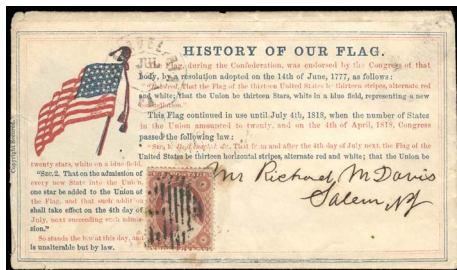 HISTORY OF OUR FLAG.
The Flag, during the Confederation, was endorsed by the Congress of that
body, by a resolution adopted on the 14th of June, 1777, as follows:
"Resolved, That the Flag of the thirteen United States be thirteen stripes, alternate red
and white; that the Union be thirteen Stars, white in a blue field, representing a new
constellation."
This Flag continued in use until July 4th, 1818, when the number of States
in the Union amounted to twenty, and on the 4th of April, 1818, Congress
passed the following law:
"Sec. 1. Be it enacted, &c. That from and after the 4th day of July next, the Flag of the
United States be thirteen horizontal stripes, alternate red and white; that the Union be
twenty stars, white on a blue field.
"Sec. 2. That on the admission of
every new State into the Union,
one star be added to the Union of
the Flag, and that such addition
shall take effect on the 4th day of
July, next succeeding such admis-
sion."
So stands the law at this day, and
is unalterable but by law.
JUL
Mr Richard M Davis
Salem, NJ